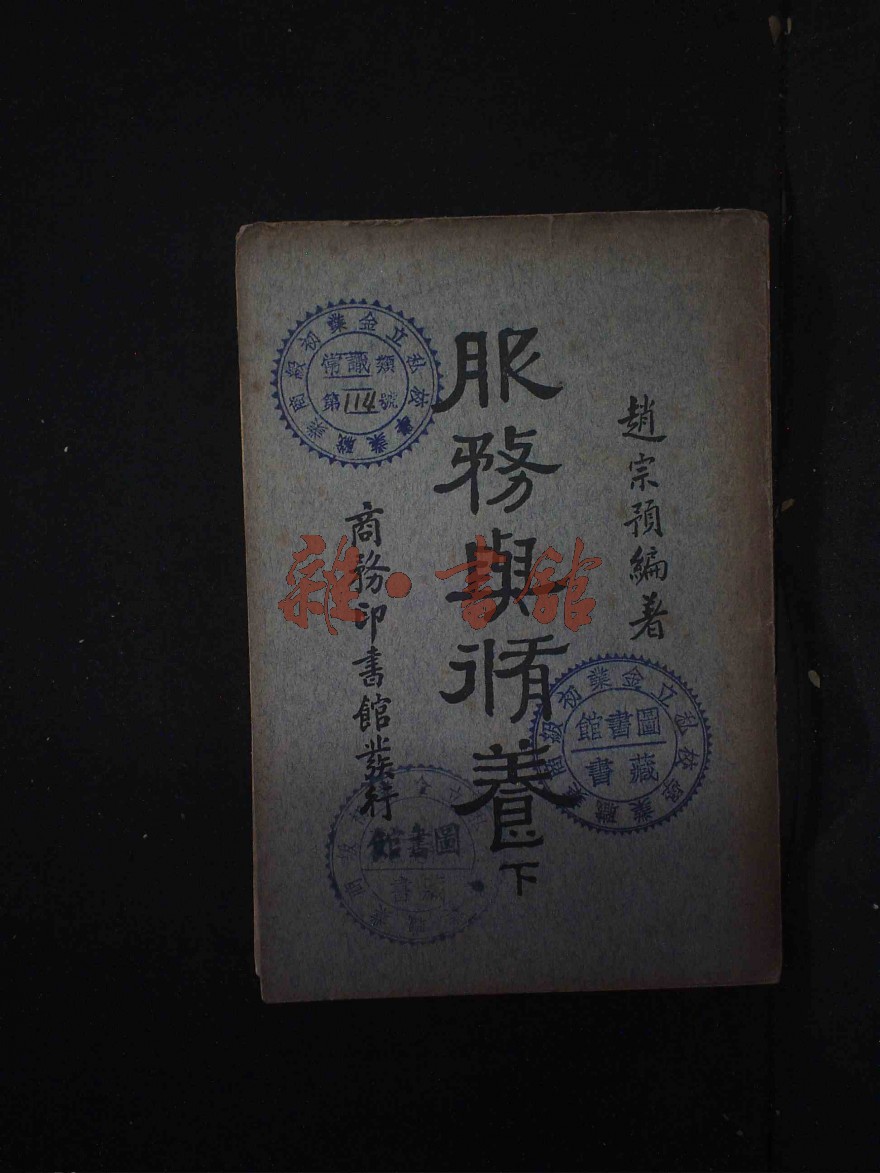 趙宗預編著
服務與脩養
下
商務印書館發行
私立金業初級商業職業學校
常識類
第114號
私立金業初級商業職業學校
圖書館
藏書
圖書館
藏書
雜·書館